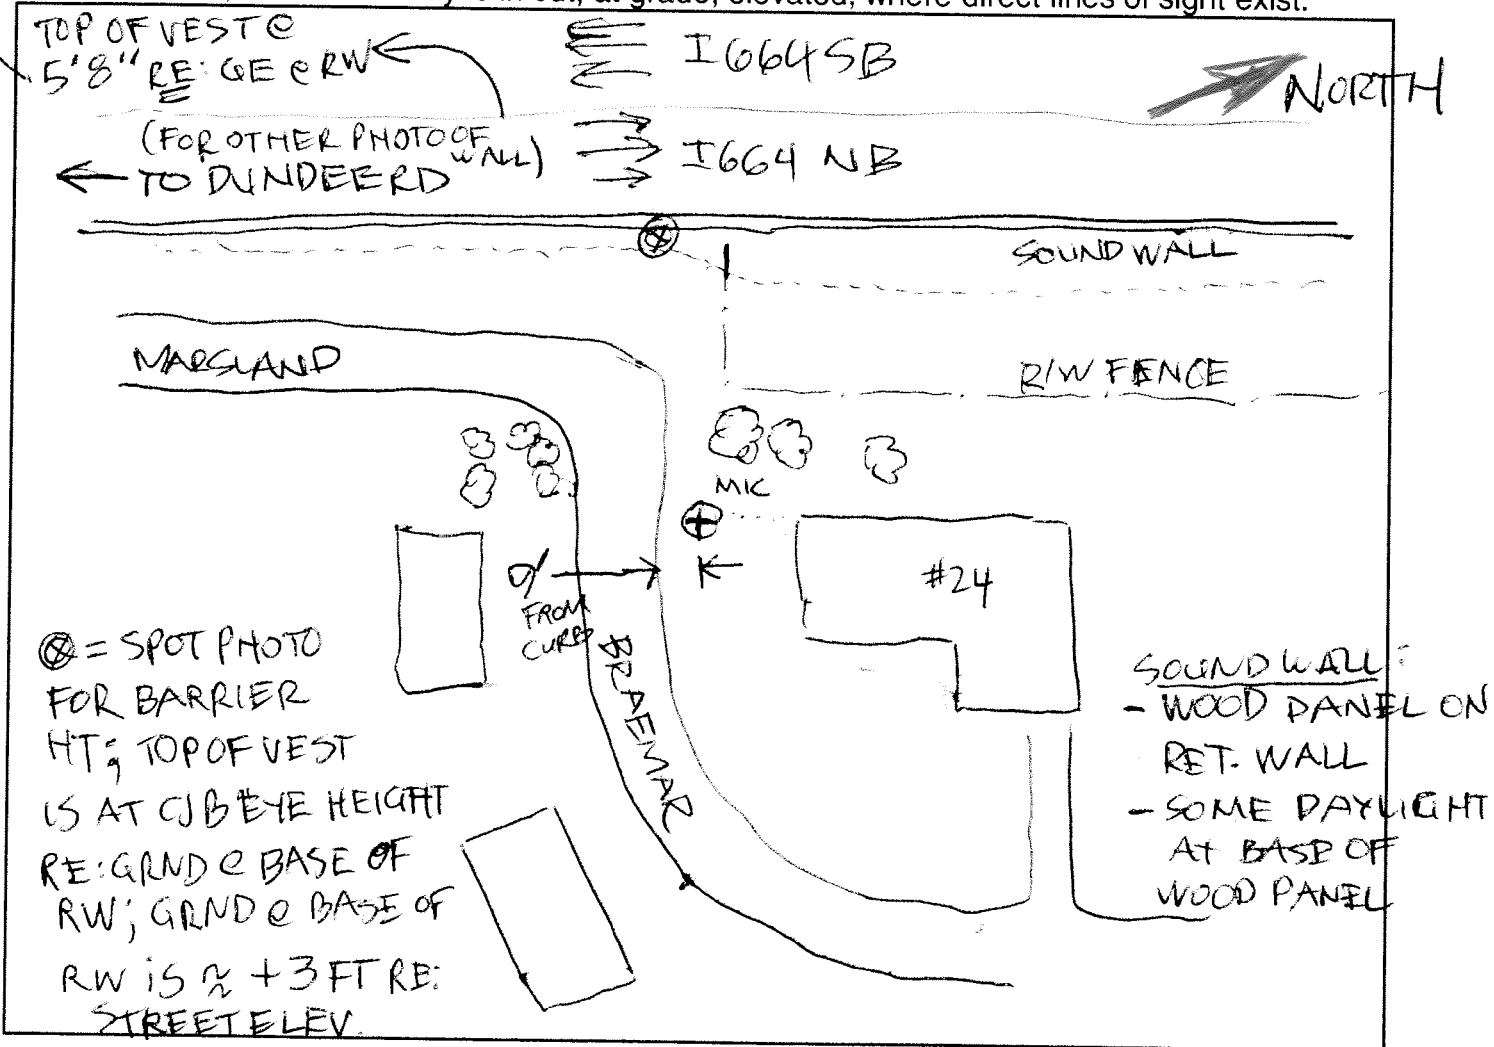 at grade, elevated, where direct lines of sight exist.
TOP OF VEST @
5'8" RE: GE @ RW
I664 SB
NORTH
(FOR OTHER PHOTO OF
WALL)
TO DUNDEE RD
I664 NB
SOUNDWALL
MARSLAND
R/W FENCE
MIC
#24
FROM
CURB
BRAEMAR
= SPOT PHOTO
FOR BARRIER
HT; TOP OF VEST
IS AT CJB EYE HEIGHT
RE: GRND @ BASE OF
RW; GRND @ BASE OF
RW IS ≈ +3 FT RE:
STREET ELEV.
SOUND WALL:
- WOOD PANEL ON
RET. WALL
- SOME DAYLIGHT
AT BASE OF
WOOD PANEL